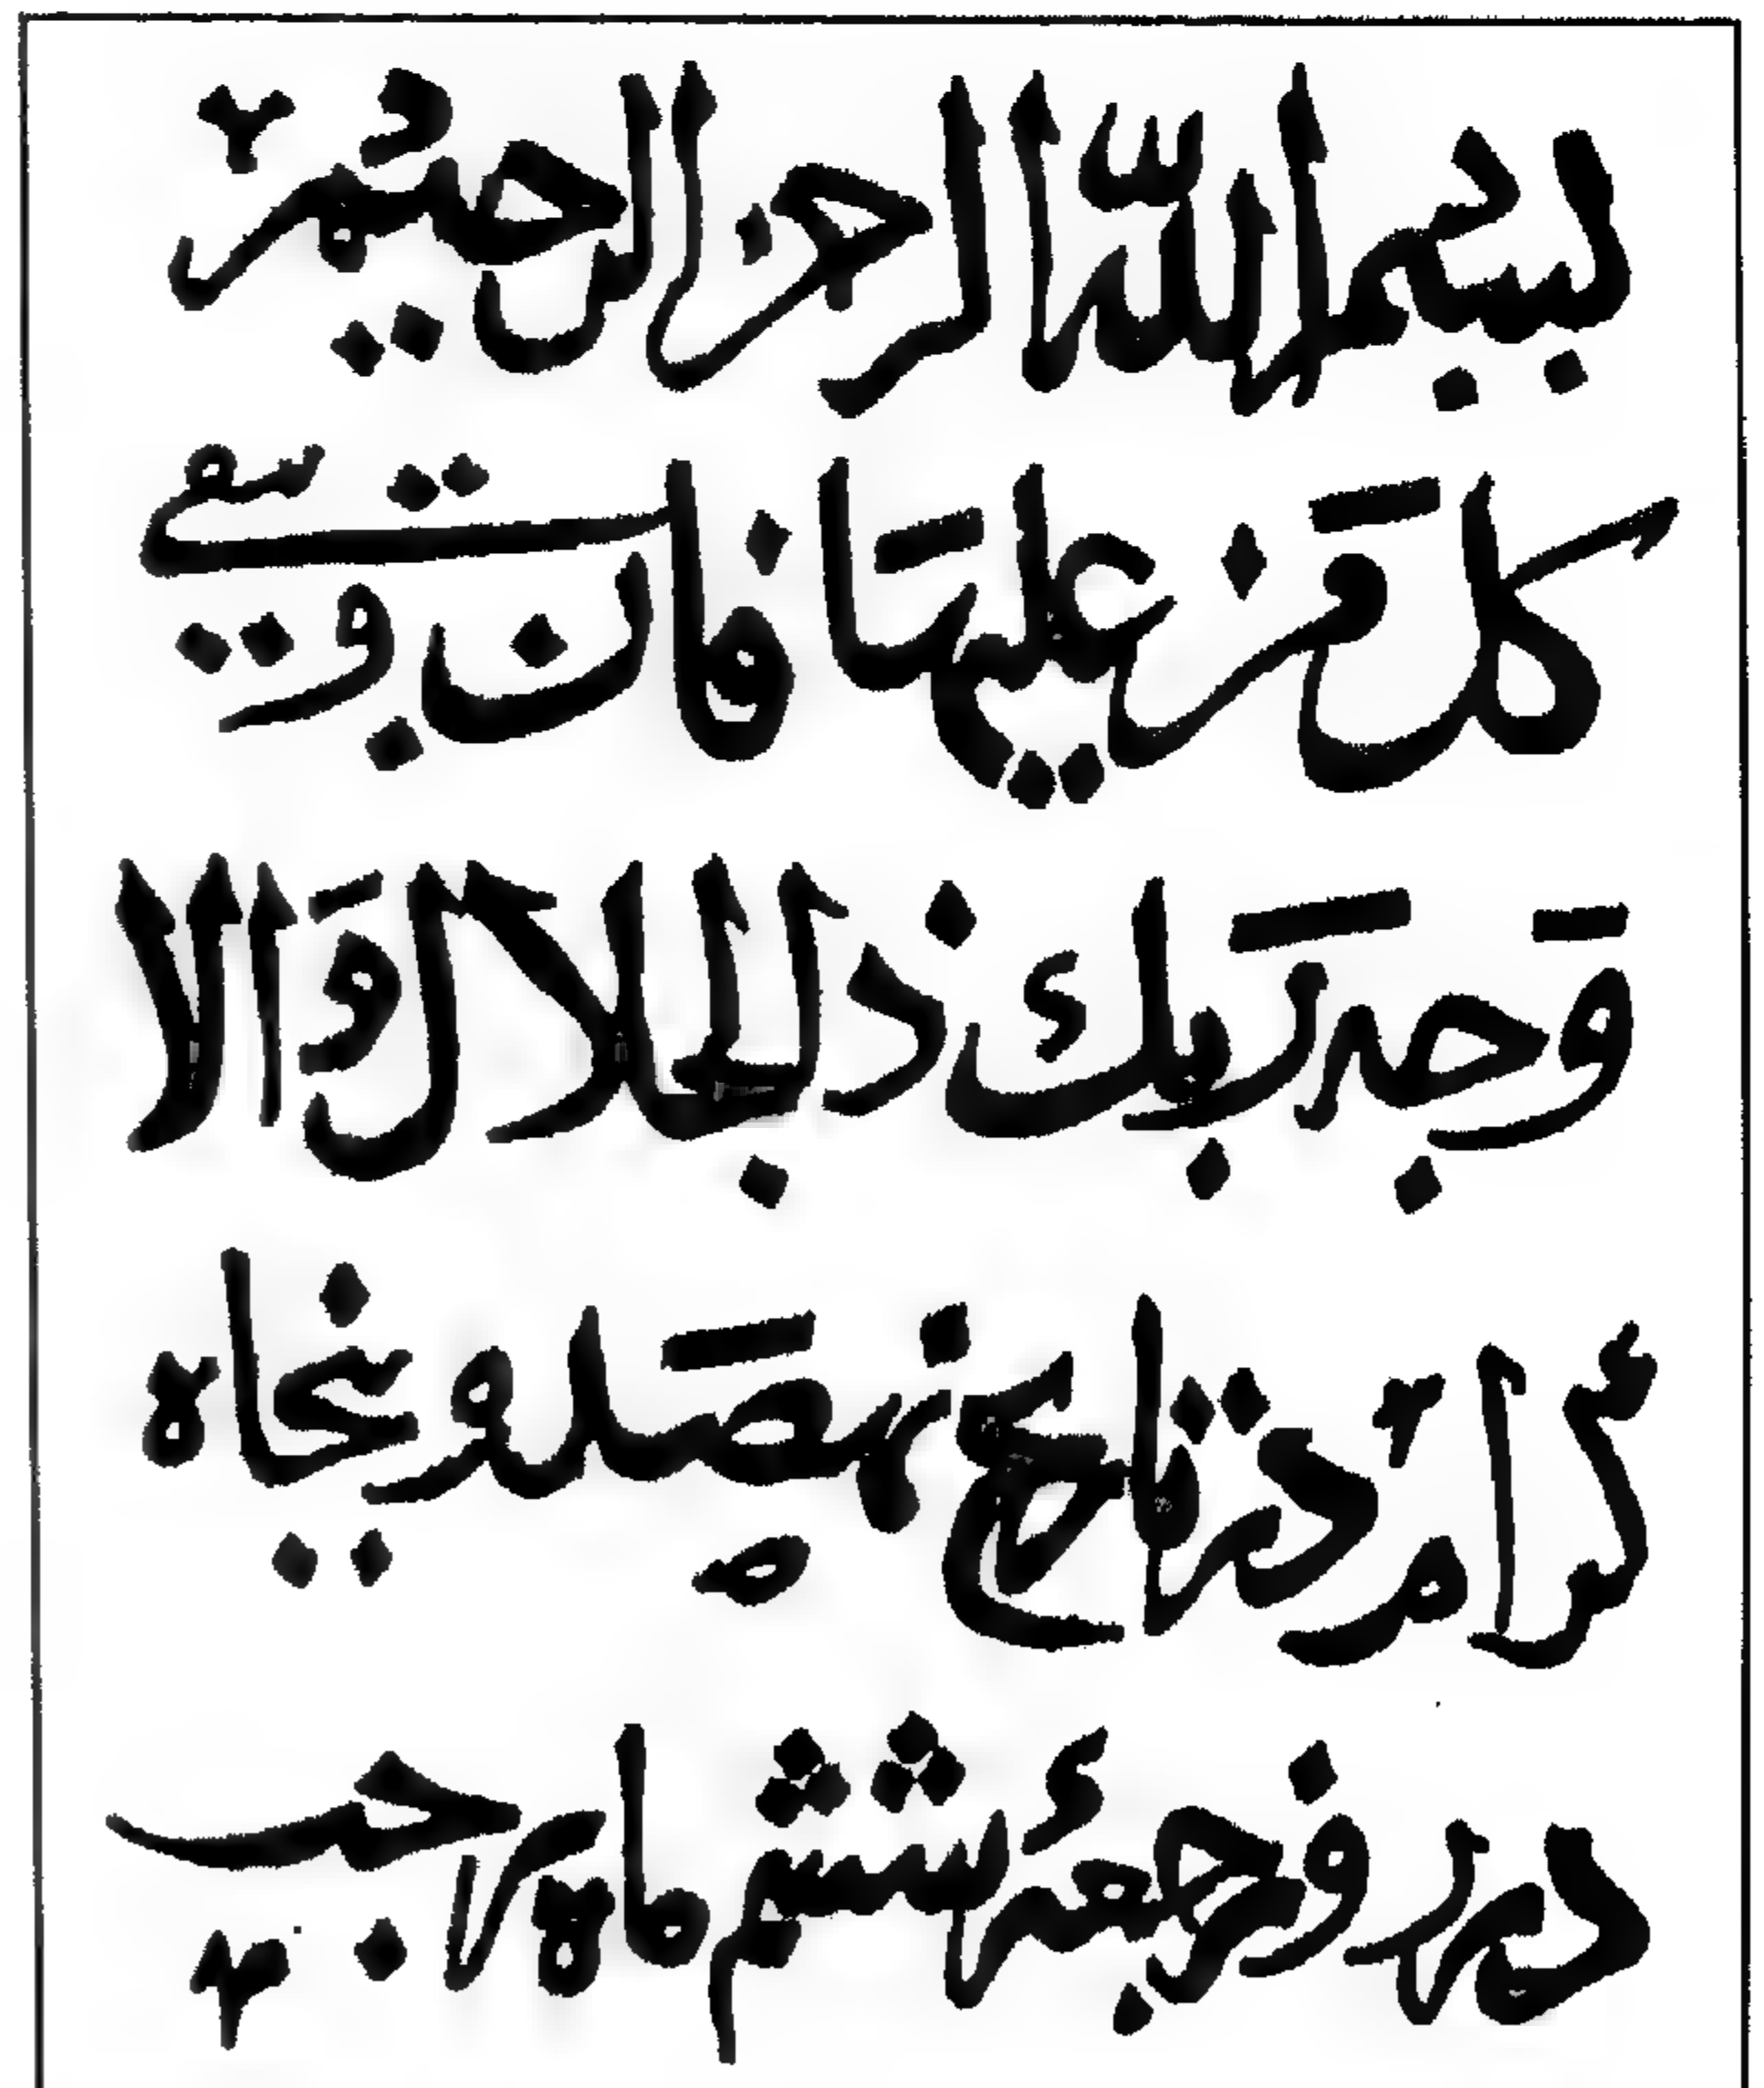 بسم الله الرحمن الرحيم
كل من عليها فان ويبقى
وجه ربك ذالجلال والا
كرام تاريخ نهصد و پنجاه
روز جمعه ششم ماه رجب